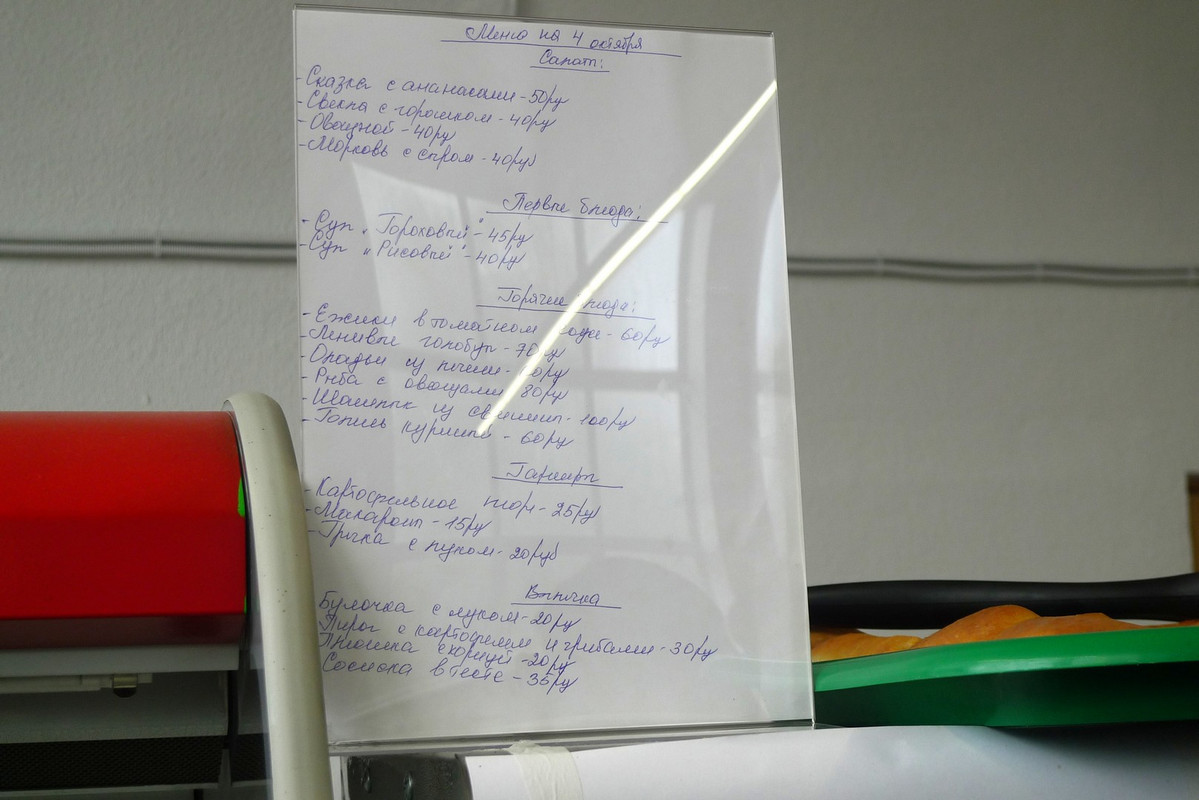 Меню на 4 октября
Салаты:
- Сказка с ананасами - 50ру
- Свекла с горошком - 40ру
- Овощной - 40ру
- Морковь с сыром - 40руб
Первые блюда:
- Суп "Гороховый" - 45ру
- Суп "Рисовый" - 40ру
Горячие блюда:
- Ежики в томатном - 60ру
- Ленивые голубцы - 70ру
- Оладьи из печени -
- Рыба с овощами 80ру
- Шашлык из свинины - 100ру
- Голень куриная - 60ру
Гарниры
- Картофельное пюре - 25ру
- Макароны - 15ру
- Гречка с луком - 20руб
Выпечка
Булочка с луком - 20ру
Пирог с картофелем и грибами - 30ру
Плюшка с корицей - 20ру
Сосиска в тесте - 35ру